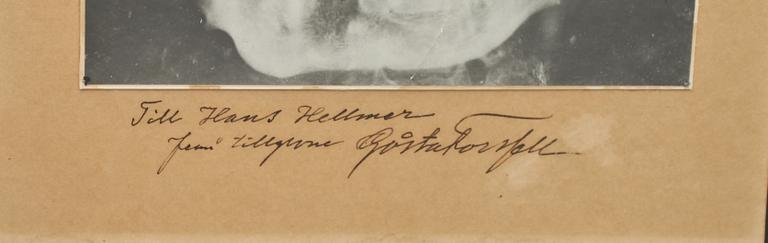 Till Hans Hellmer
från tillgivne Gösta Forssell